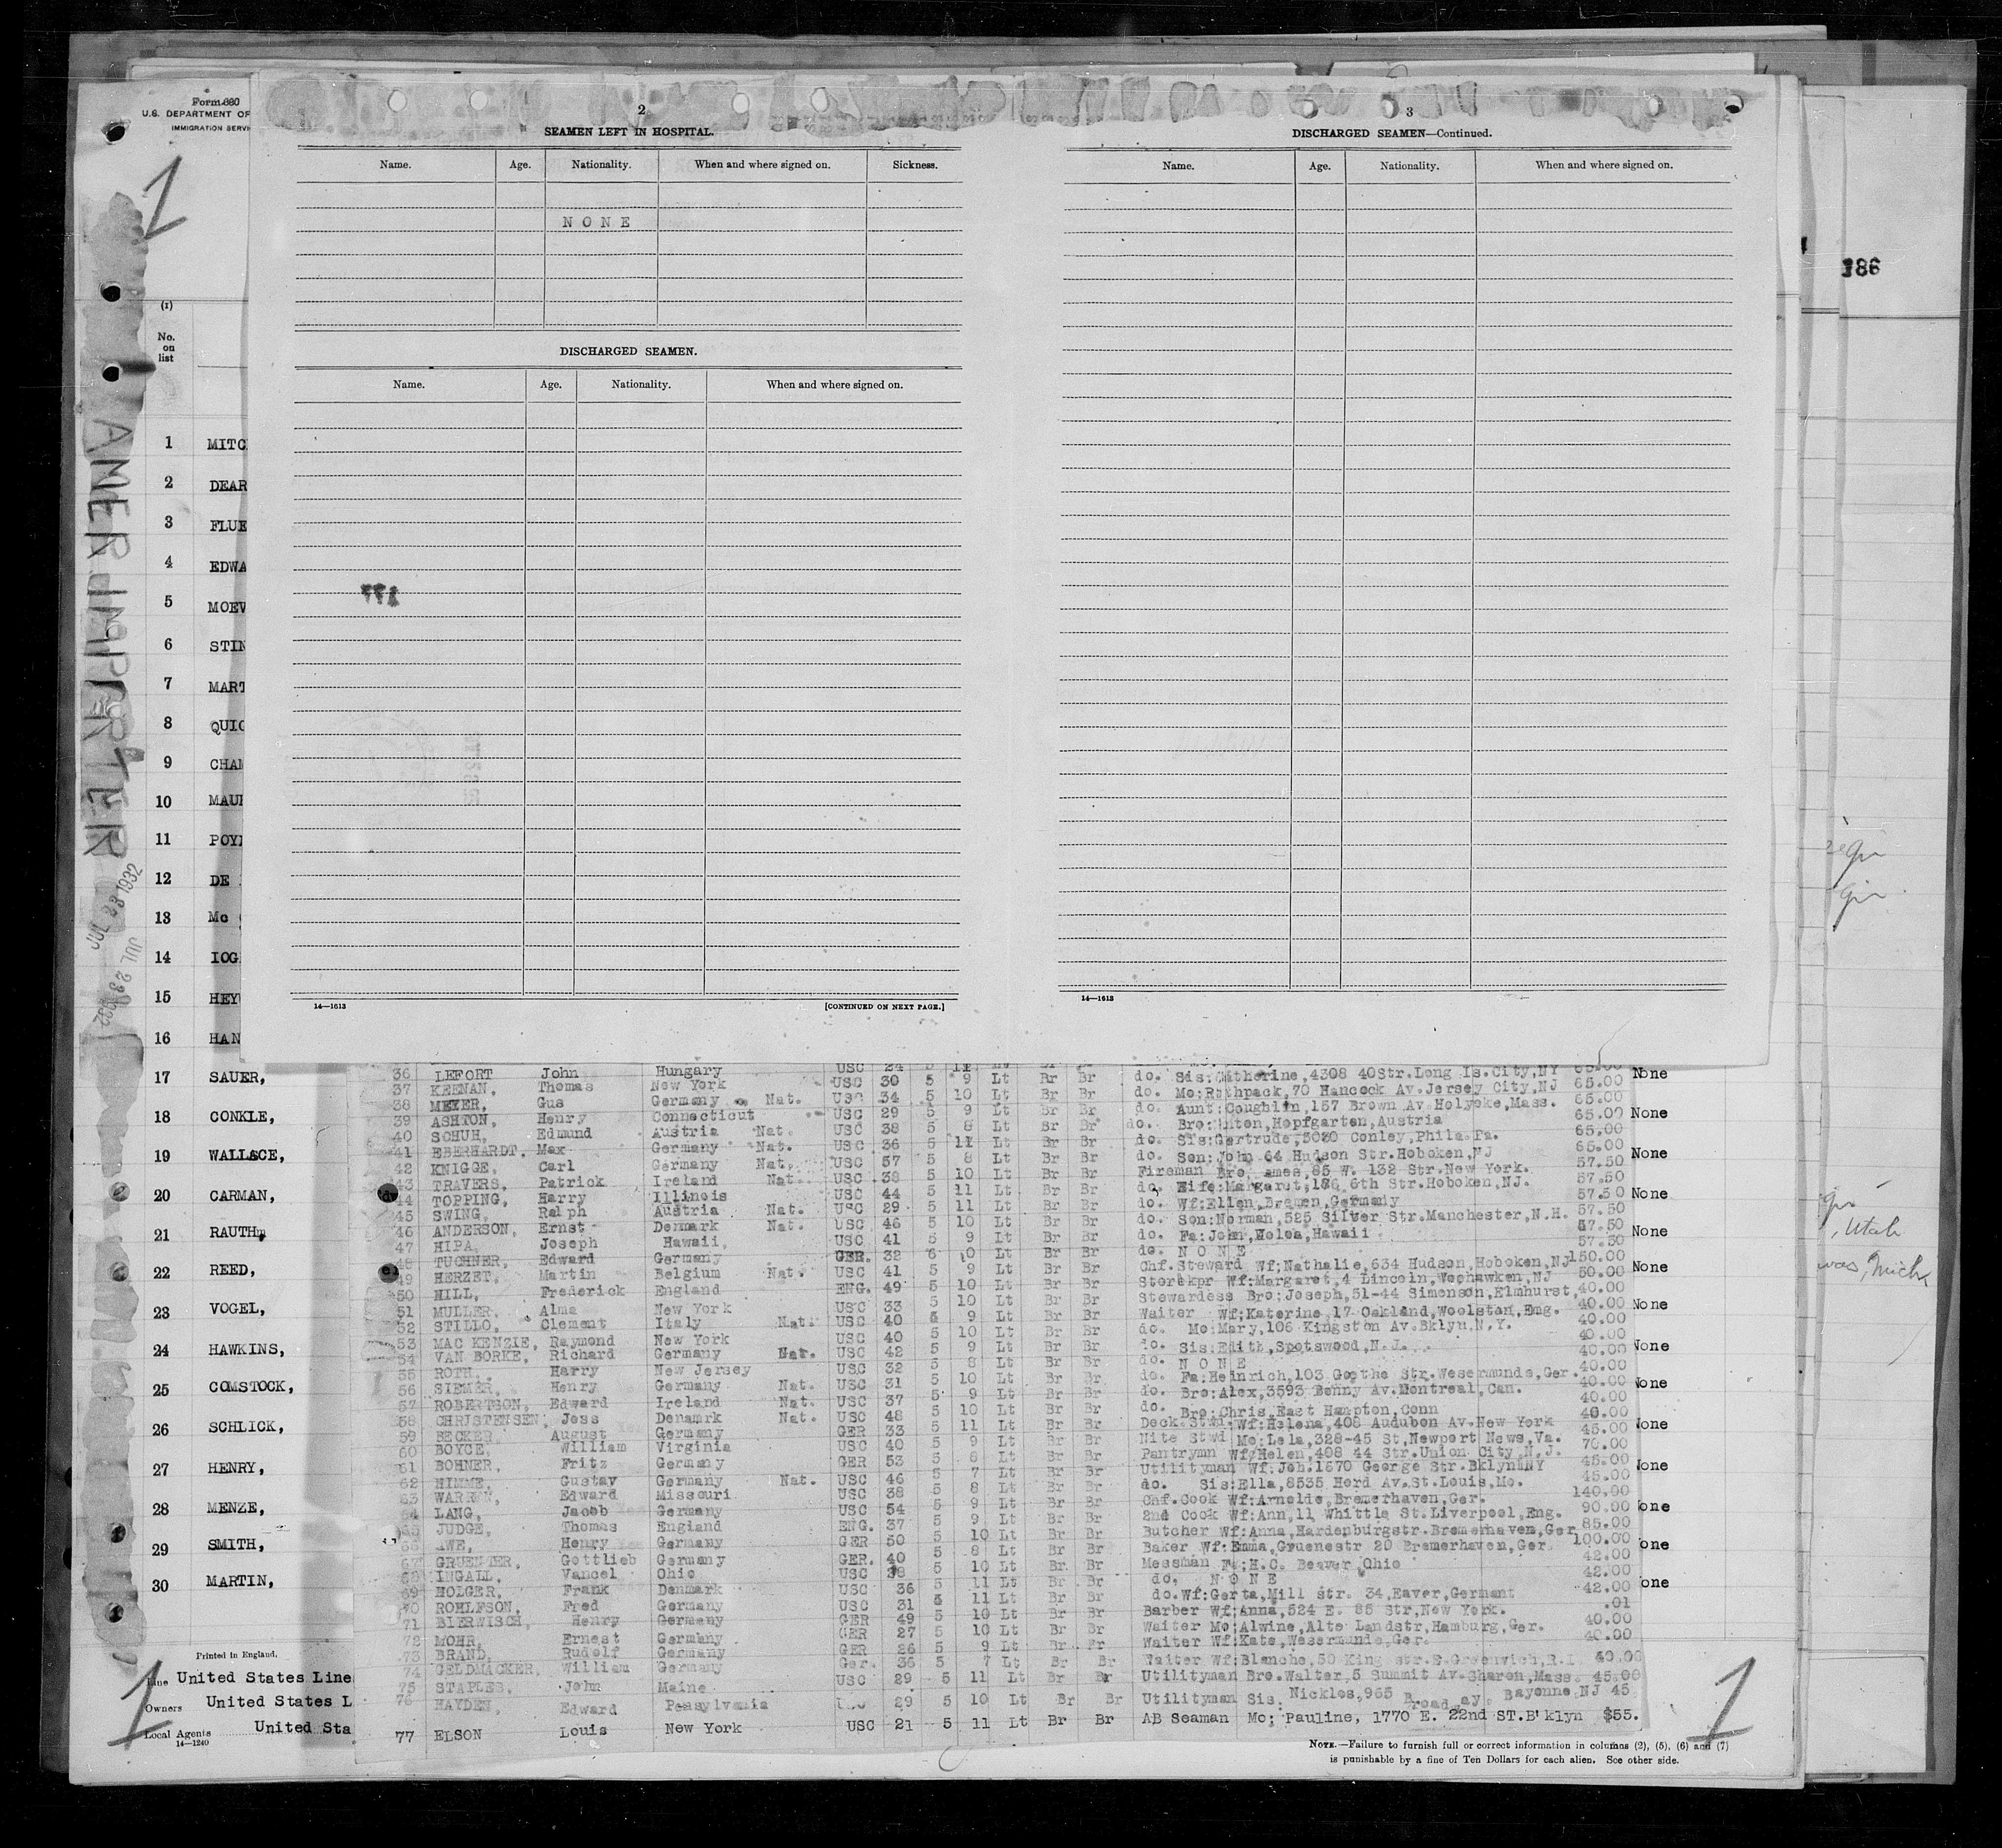 Form 680
U.S. DEPARTMENT OF
IMMIGRATION SERVI
(1)
No.
on
list
1 MITC
2 DEAR
3 FLUE
4 EDWA
5 MOEV
6 STIN
7 MART
8 QUIG
9 CHAM
10
11
12 DE
13 Mc
14 IOG
15 HEY
16 HAN
17 SAUER,
18 CONKLE,
19 WALLACE,
20 CARMAN,
21 RAUTH,
22 REED,
23 VOGEL,
24 HAWKINS,
25 COMSTOCK,
26 SCHLICK,
27 HENRY,
28 MENZE,
29 SMITH,
30 MARTIN,
AMER IMPORTER
JUL 23 1932
JUL 23 1932
1
Printed in England.
Line United States Line
Owners United States L
Local Agents United Sta
14—1240
1
2
SEAMEN LEFT IN HOSPITAL.
Name. Age. Nationality. When and where signed on. Sickness.
NONE
DISCHARGED SEAMEN.
Name. Age. Nationality. When and where signed on.
14—1613 [CONTINUED ON NEXT PAGE.]
3
DISCHARGED SEAMEN—Continued.
Name. Age. Nationality. When and where signed on.
14—1613
186
, Utah
, Mich
36 LEFORT John Hungary USC 24 5 11
37 KEENAN, Thomas New York USC 30 5 9 Lt Br Br do. Sis: Catherine, 4308 40Str. Long Is. City, NY 65.00
38 MEYER, Gus Germany Nat. USC 34 5 10 Lt Br Br do. Mo: Rothpack, 70 Hancock Av. Jersey City, NJ 65.00
39 ASHTON, Henry Connecticut USC 29 5 9 Lt Br Br do. Aunt: Coughlin, 157 Brown Av. Holyoke, Mass. 65.00
40 SCHUH, Edmund Austria Nat. USC 38 5 8 Lt Br Br do. Bro: Anton, Hopfgarten, Austria 65.00
41 EBERHARDT, Max Germany Nat. USC 36 5 11 Lt Br Br do. Sis: Gertrude, 3030 Conley, Phila. Pa. 65.00
42 KNIGGE, Carl Germany Nat. USC 57 5 8 Lt Br Br do. Son: John 64 Hudson Str. Hoboken, NJ 57.50
43 TRAVERS, Patrick Ireland Nat. USC 38 5 10 Lt Br Br Fireman Bro. James, 85 W. 132 Str. New York. 57.50
44 TOPPING, Harry Illinois USC 44 5 11 Lt Br Br do. Wife: Margaret, 186, 6th Str. Hoboken, NJ. 57.50
45 SWING, Ralph Austria Nat. USC 29 5 11 Lt Br Br do. Wf: Ellen, Bremen, Germany 57.50
46 ANDERSON, Ernst Denmark Nat. USC 46 5 10 Lt Br Br do. Son: Norman, 525 Silver Str. Manchester, N.H. 57.50
47 HIPA, Joseph Hawaii, USC 41 5 9 Lt Br Br do. Fa: John, Holoa, Hawaii 57.50
48 TUCHNER, Edward Germany GER. 32 6 0 Lt Br Br do. NONE
49 HERZET, Martin Belgium Nat. USC 41 5 9 Lt Br Br Chf. Steward Wf; Nathalie, 634 Hudson, Hoboken, NJ 150.00
50 HILL, Frederick England ENG. 49 5 10 Lt Br Br Storekpr Wf: Margaret, 4 Lincoln, Weehawken, NJ 50.00
51 MULLER, Alma New York USC 33 5 10 Lt Br Br Stewardess Bro: Joseph, 51-44 Simonson, Elmhurst, 40.00
52 STILLO, Clement Italy Nat. USC 40 5 9 Lt Br Br Waiter Wf: Katerine, 17 Oakland, Woolston, Eng. 40.00
53 MAC KENZIE, Raymond New York USC 40 5 10 Lt Br Br do. Mo: Mary, 106 Kingston Av. Bklyn, N.Y. 40.00
54 VAN BORKE, Richard Germany Nat. USC 42 5 9 Lt Br Br do. Sis: Edith, Spotswood, N.J. 40.00
55 ROTH, Harry New Jersey USC 32 5 8 Lt Br Br do. NONE 40.00
56 SIEMER, Henry Germany Nat. USC 31 5 10 Lt Br Br do. Fa: Heinrich, 103 Goethe Str. Wesermunde, Ger. 40.00
57 ROBERTSON, Edward Ireland Nat. USC 37 5 9 Lt Br Br do. Bro: Alex, 3593 Benny Av. Montreal, Can. 40.00
58 CHRISTENSEN, Jess Denamrk Nat. USC 48 5 10 Lt Br Br do. Bro: Chris, East Hampton, Conn 40.00
59 BECKER, August Germany GER 33 5 11 Lt Br Br Deck Stwd. Wf: Helena, 408 Audubon Av. New York 45.00
60 BOYCE, William Virginia USC 40 5 9 Lt Br Br Nite Stwd Mo: Lela, 328-45 St, Newport News, Va. 70.00
61 BOHNER, Fritz Germany GER 53 5 6 Lt Br Br Pantrymn Wf: Helen, 408 44 Str. Union City, N.J. 45.00
62 HIMME, Gustav Germany Nat. USC 46 5 7 Lt Br Br Utilityman Wf: Joh. 1670 George Str. Bklyn NY 45.00
63 WARREN, Edward Missouri USC 38 5 8 Lt Br Br do. Sis: Ella, 8535 Herd Av. St. Louis, Mo.
64 LANG, Jacob Germany USC 54 5 9 Lt Br Br Chf. Cook Wf: Arnolde, Bremerhaven, Ger. 140.00
65 JUDGE, Thomas England ENG. 37 5 9 Lt Br Br 2nd Cook Wf: Ann, 11 Whittle St. Liverpool, Eng. 90.00
66 AWE, Henry Germany GER 50 5 10 Lt Br Br Butcher Wf: Anna, Hardenburgstr. Bremerhaven, Ger 85.00
67 GRUENTER, Gottlieb Germany GER. 40 5 8 Lt Br Br Baker Wf: Emma, Gruenestr 20 Bremerhaven, Ger. 100.00
68 INGALL, Vancel Ohio USC 38 5 10 Lt Br Br Messman Fa: H.C. Beaver, Ohio 42.00
69 HOLGER, Frank Denmark USC 36 5 11 Lt Br Br do. NONE 42.00
70 ROHLFSON, Fred Germany USC 31 5 11 Lt Br Br do. Wf: Gerta, Mill str. 34, Eaver, Germant 42.00
71 BIERWISCH, Henry Germany GER 49 5 10 Lt Br Br Barber Wf: Anna, 524 E. 85 Str, New York. .01
72 MOHR, Ernest Germany GER 27 5 10 Lt Br Br Waiter Mo: Alwine, Alte Landstr, Hamburg, Ger. 40.00
73 BRAND, Rudolf Germany GER 26 5 9 Lt Br Br Waiter Wf: Kate, Wesermunde, Ger. 40.00
74 GELDMACKER, William Germany Ger. 36 5 7 Lt Br Br Waiter Wf: Blanche, 50 King str. E. Greenwich, R.I. 40.00
75 STAPLES, John Maine USC 29 5 11 Lt Br Br Utilityman Bro. Walter, 5 Summit Av. Sharon, Mass. 45.00
76 HAYDEN, Edward Pensylvania 29 5 10 Lt Br Br Utilityman Sis. Nickles, 965 Broadway, Bayonne, NJ 45
77 ELSON Louis New York USC 21 5 11 Lt Br Br AB Seaman Mo; Pauline, 1770 E. 22nd ST. B'klyn $55.
None
None
None
None
None
None
None
None
None
None
None
one
one
one
NOTE.—Failure to furnish full or correct information in columns (2), (5), (6) and (7)
is punishable by a fine of Ten Dollars for each alien. See other side.
1